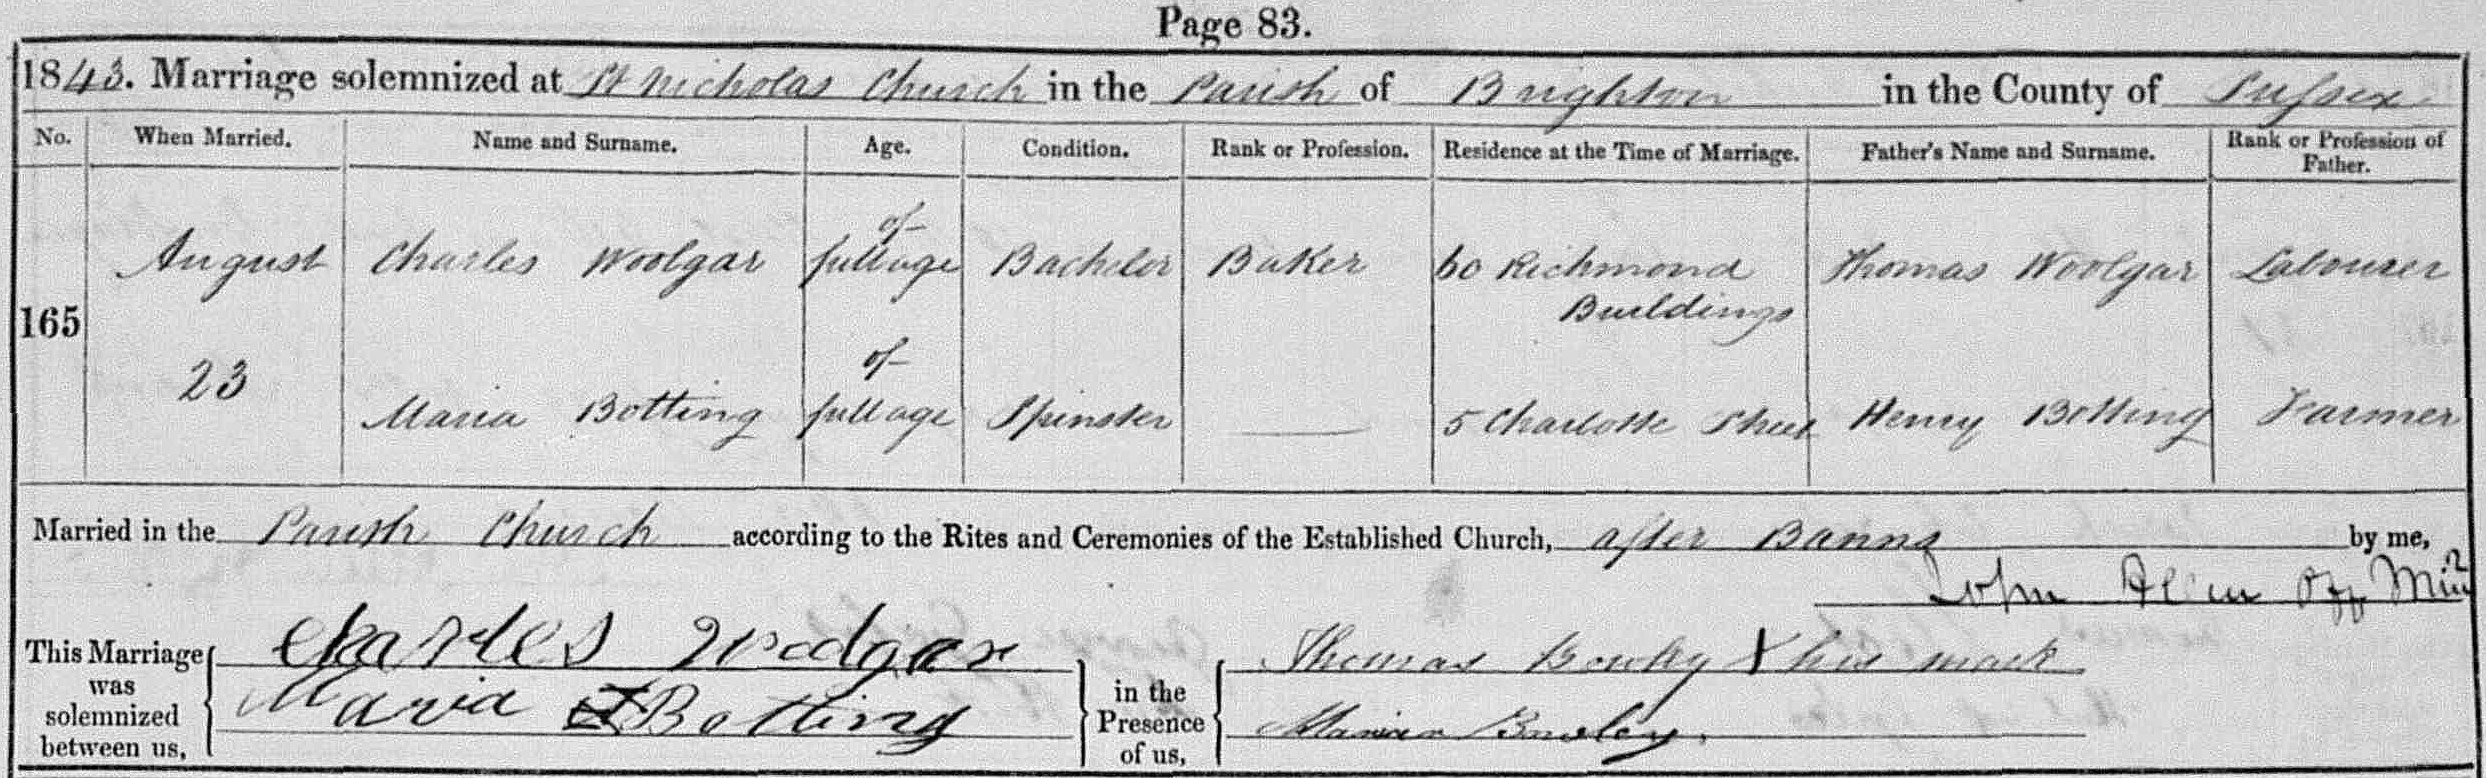 Page 83.
1843. Marriage solemnized at St Nicholas Church in the Parish of Brighton in the County of Sussex
No. When Married. Name and Surname. Age. Condition. Rank or Profession. Residence at the Time of Marriage. Father's Name and Surname. Rank or Profession of Father.
165
August Charles Woolgar of full age Bachelor Baker 60 Richmond Buildings Thomas Woolgar Labourer
23 Maria Botting of full age Spinster 5 Charlotte Street Henry Botting Farmer
Married in the Parish Church according to the Rites and Ceremonies of the Established Church, after Banns by me,
John Allen Off Minr
This Marriage was solemnized between us,
Charles Woolgar
Maria Botting
in the Presence of us,
Thomas X his mark